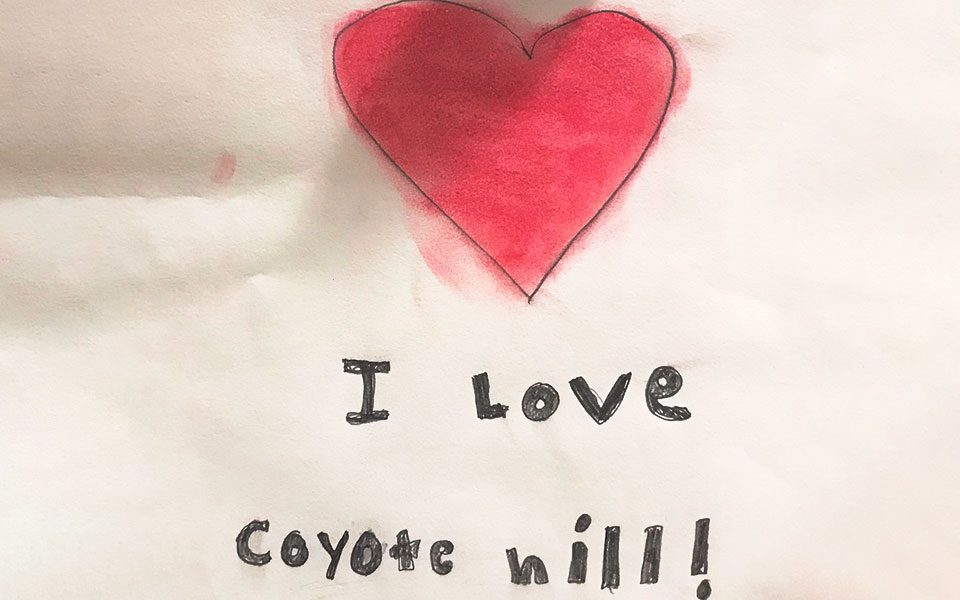 I Love
Coyote hill!